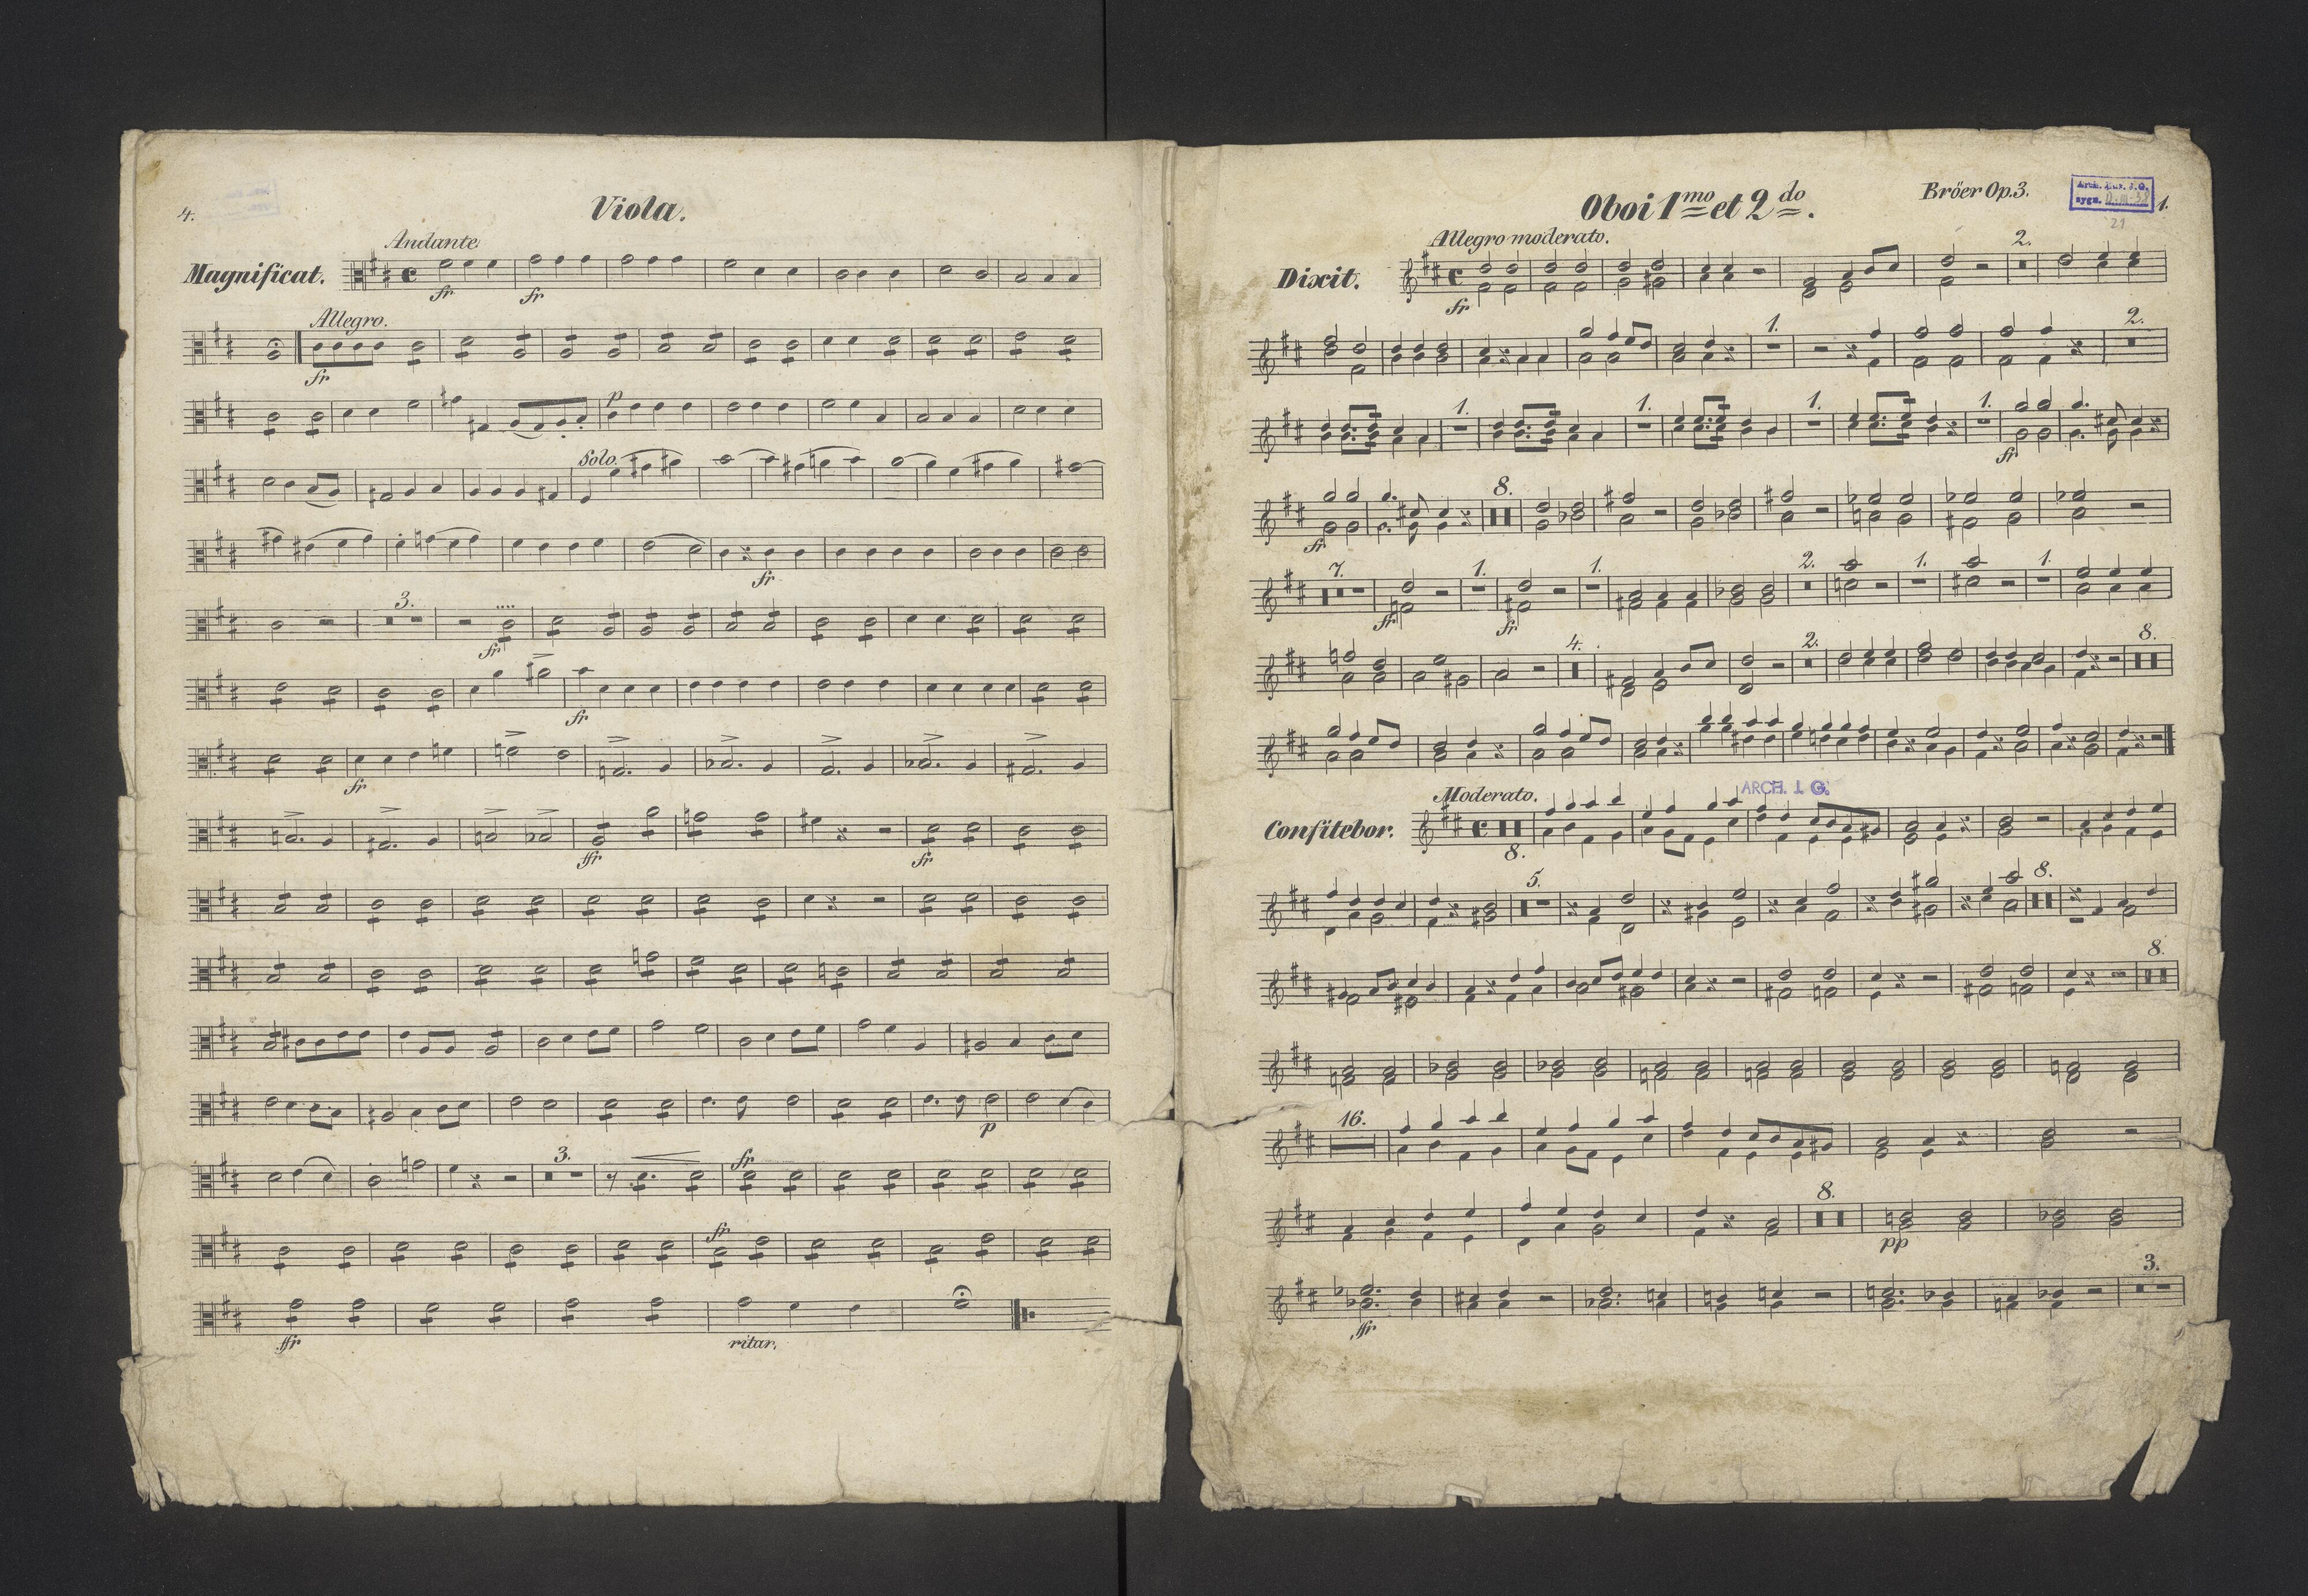 4.
Viola.
Andante
Magnificat.
fr
fr
Allegro.
fr
p
Solo.
fr
3.
fr
fr
fr
ffr
fr
p
3.
fr
fr
ffr
ritar.
Oboi 1mo et 2do.
Bröer Op.3.
1.
21
Allegro moderato.
Dixit.
2.
fr
1.
2.
1.
1.
1.
1.
fr
8.
fr
7.
1.
1.
2.
1.
1.
fr
fr
4.
2.
8.
ARCH. J. G.
Moderato.
Confitebor.
8.
5.
8.
8.
16.
8.
pp
3.
ffr